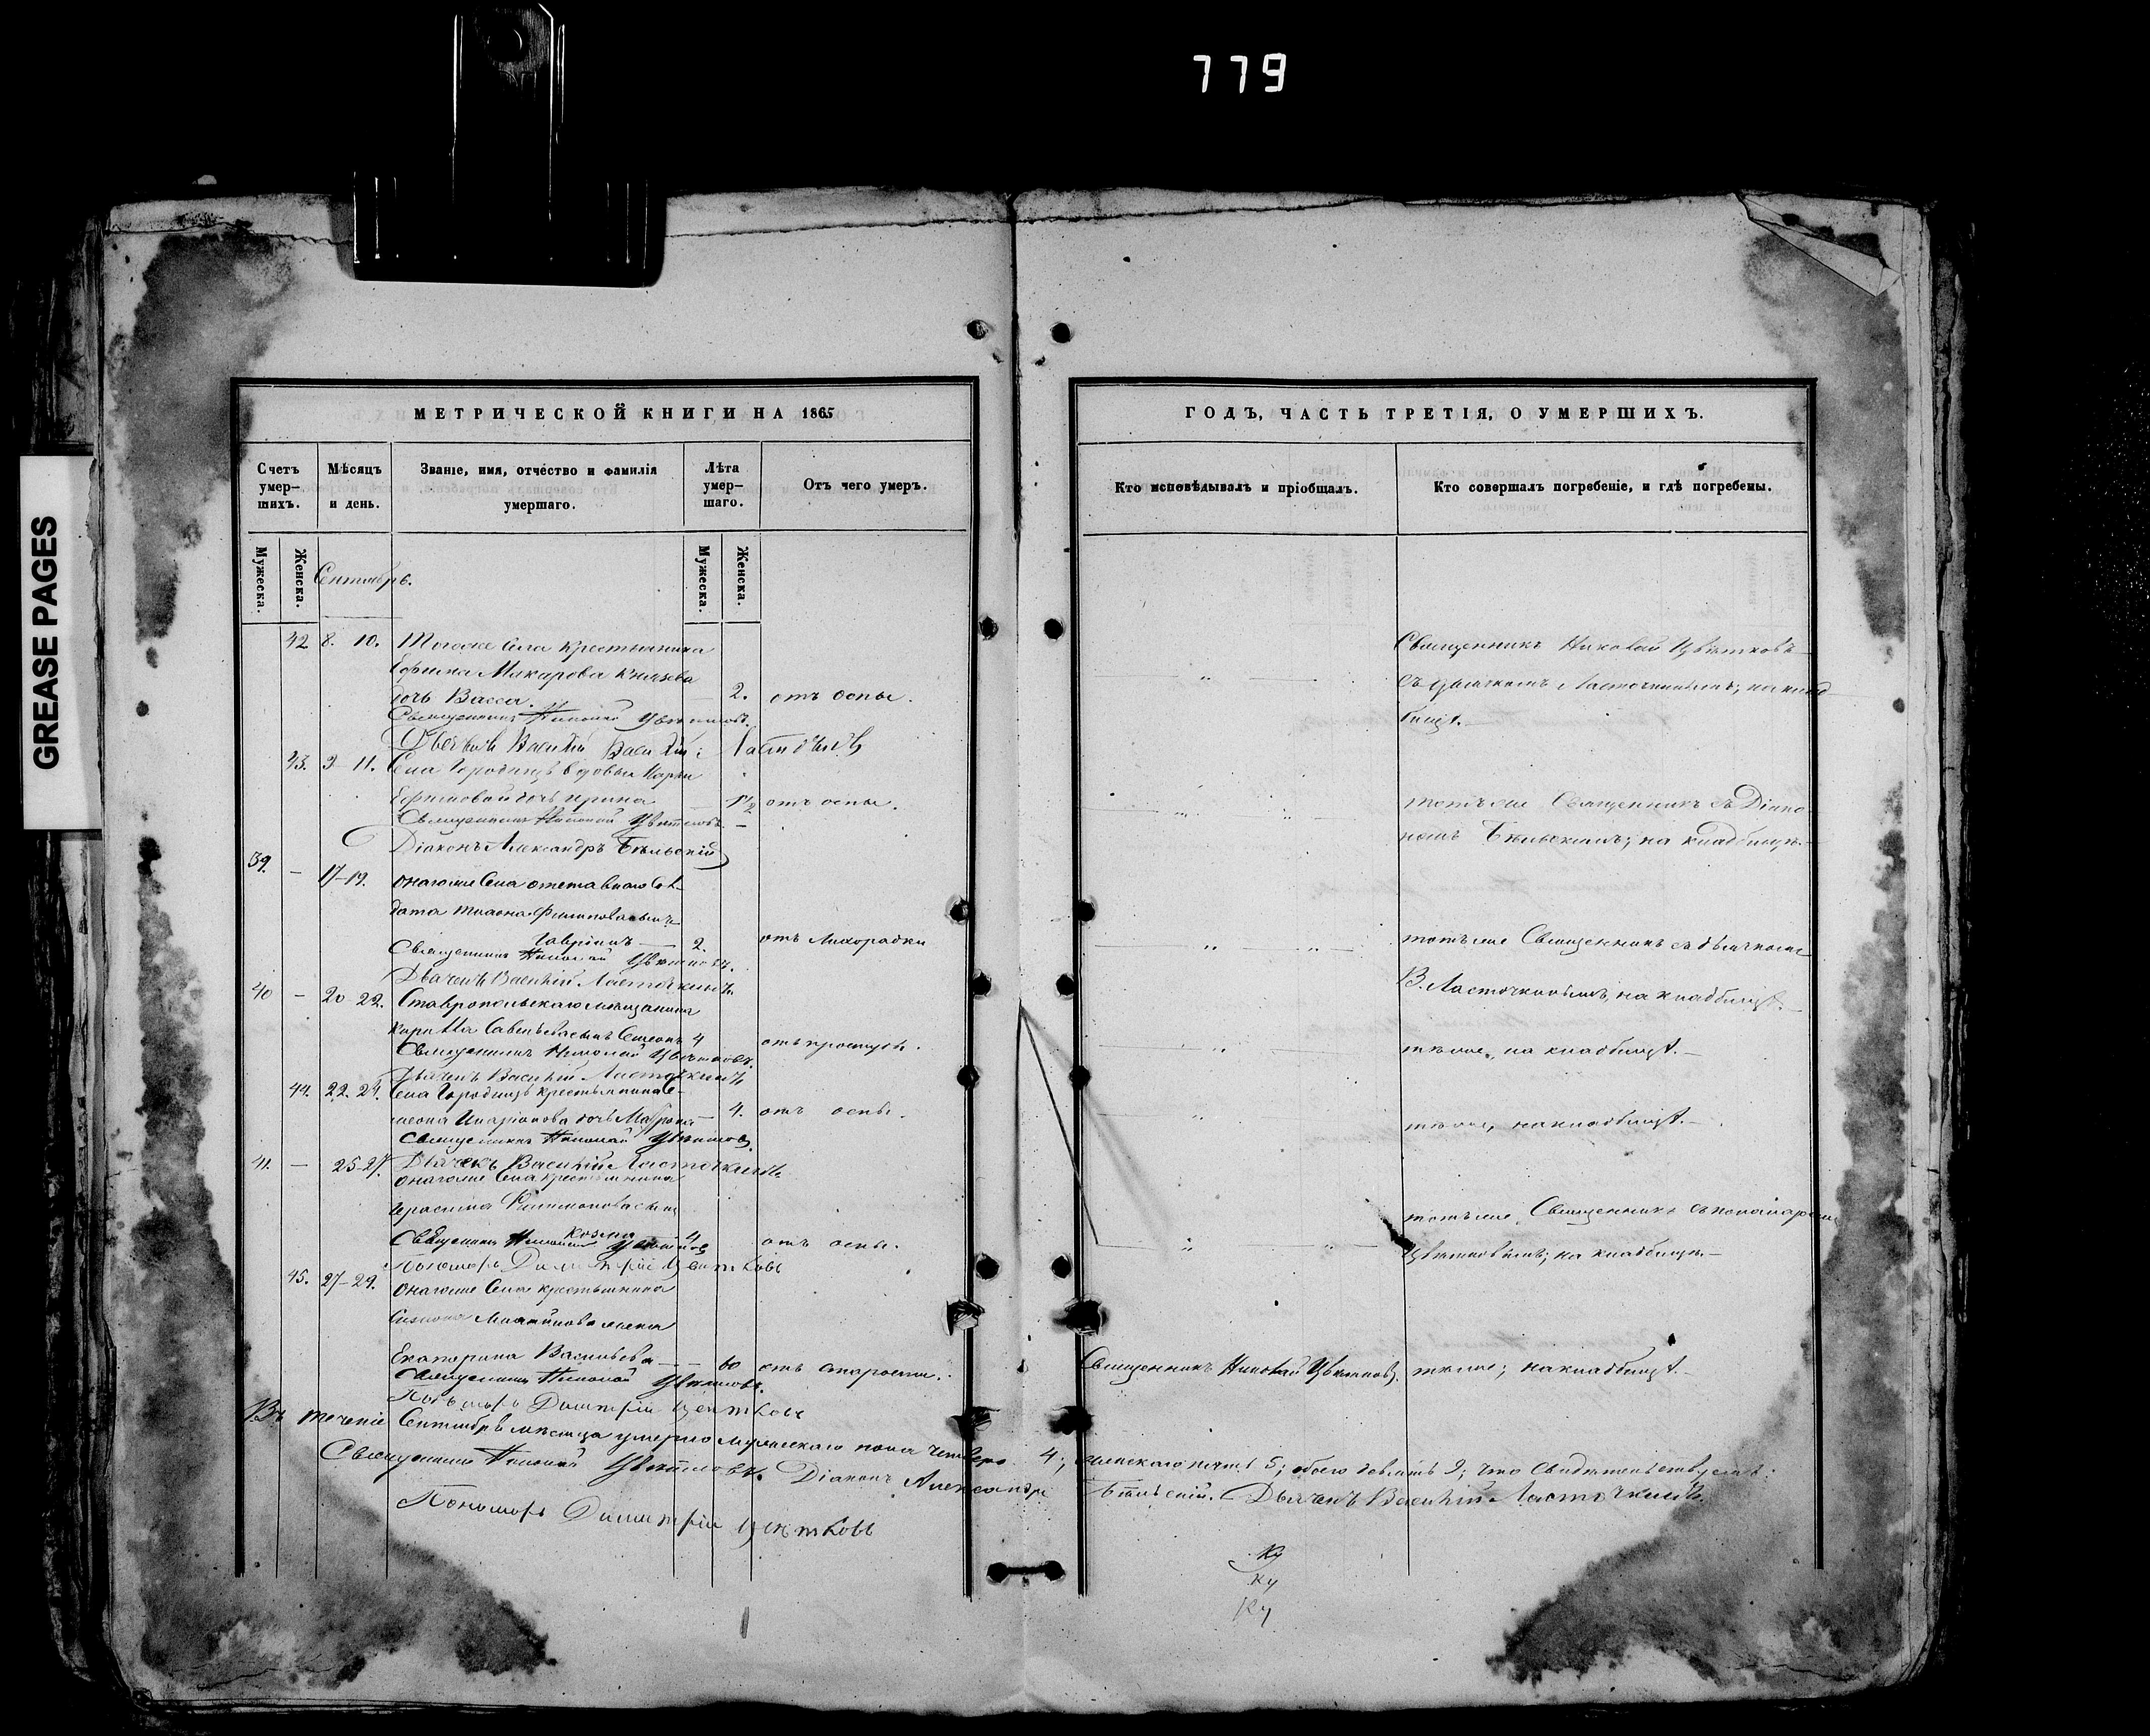 779
GREASE PAGES
МЕТРИЧЕСКОЙ КНИГИ НА 1865
ГОДЪ, ЧАСТЬ ТРЕТІЯ, О УМЕРШИХЪ.
Счетъ умер-шихъ.
Мѣсяцъ и день.
Званіе, имя, отчество и фамилія умершаго.
Лѣта умер-шаго.
Отъ чего умеръ.
Кто исповѣдывалъ и пріобщалъ.
Кто совершалъ погребеніе, и гдѣ погребены.
Мужеска.
Женска.
Мужеска.
Женска.
Сентябрь.
42 8. 10. Тогоже Села крестьянина
Ефима Макарова Князева
дочь Васса. 2. отъ оспы.
Священникъ Николай Цвѣтковъ
съ дьячкомъ Ласточкинымъ; на клад
бищѣ.
Священникъ Николай Цвѣтковъ.
Дьячекъ Василій
43. 9 11. Села Городищъ вдовы Марьи
Ефимовой дочь Ирина 1½ отъ оспы.
тотъ же Священникъ съ Діако
номъ Бѣльскимъ; на кладбищѣ.
Священникъ Николай Цвѣтковъ.
Діаконъ Александръ Бѣльскій
39. – 17–19. Онагоже Села отставнаго Сол
дата Филипова сынъ
Гавріилъ — 2. отъ Лихорадки
тотъ же Священникъ съ дьячкомъ
В. Ласточкинымъ, на кладбищѣ.
Священникъ Николай Цвѣтковъ.
Дьячекъ Василій Ласточкинъ.
40 – 20 22. Ставропольскаго мѣщанина
Савельева сынъ Симеонъ 4 отъ простуды.
тѣже, на кладбищѣ.
Священникъ Николай Цвѣтковъ.
Дьячекъ Василій Ласточкинъ
44. 22. 24. Села Городищъ крестьянина Си-
меона Иларіонова дочь Мавра 4. отъ оспы.
тѣже, на кладбищѣ.
Священникъ Николай Цвѣтковъ.
Дьячекъ Василій Ласточкинъ
41. – 25–27. Онагоже Села крестьянина
Герасима сынъ
Козма — 4 отъ оспы.
тотъ же Священникъ съ пономаремъ
Цвѣтковымъ; на кладбищѣ.
Священникъ Николай Цвѣтковъ
Пономарь Димитрій Цвѣтковъ
45. 27–29. Онагоже Села крестьянина
жена
Екатерина Васильева — 60 отъ старости.
Священникъ Николай Цвѣтковъ. тѣже; на кладбищѣ.
Священникъ Николай Цвѣтковъ.
Пономарь Димитрій Цвѣтковъ
Въ теченіе Сентября мѣсяца умерло мужескаго пола четверо 4; женскаго пять 5; обоего девять 9; что свидѣтельствуютъ:
Священникъ Николай Цвѣтковъ. Діаконъ Александръ Бѣльскій. Дьячекъ Василій Ласточкинъ.
Пономарь Димитрій Цвѣтковъ
Ку
Ку
Ку